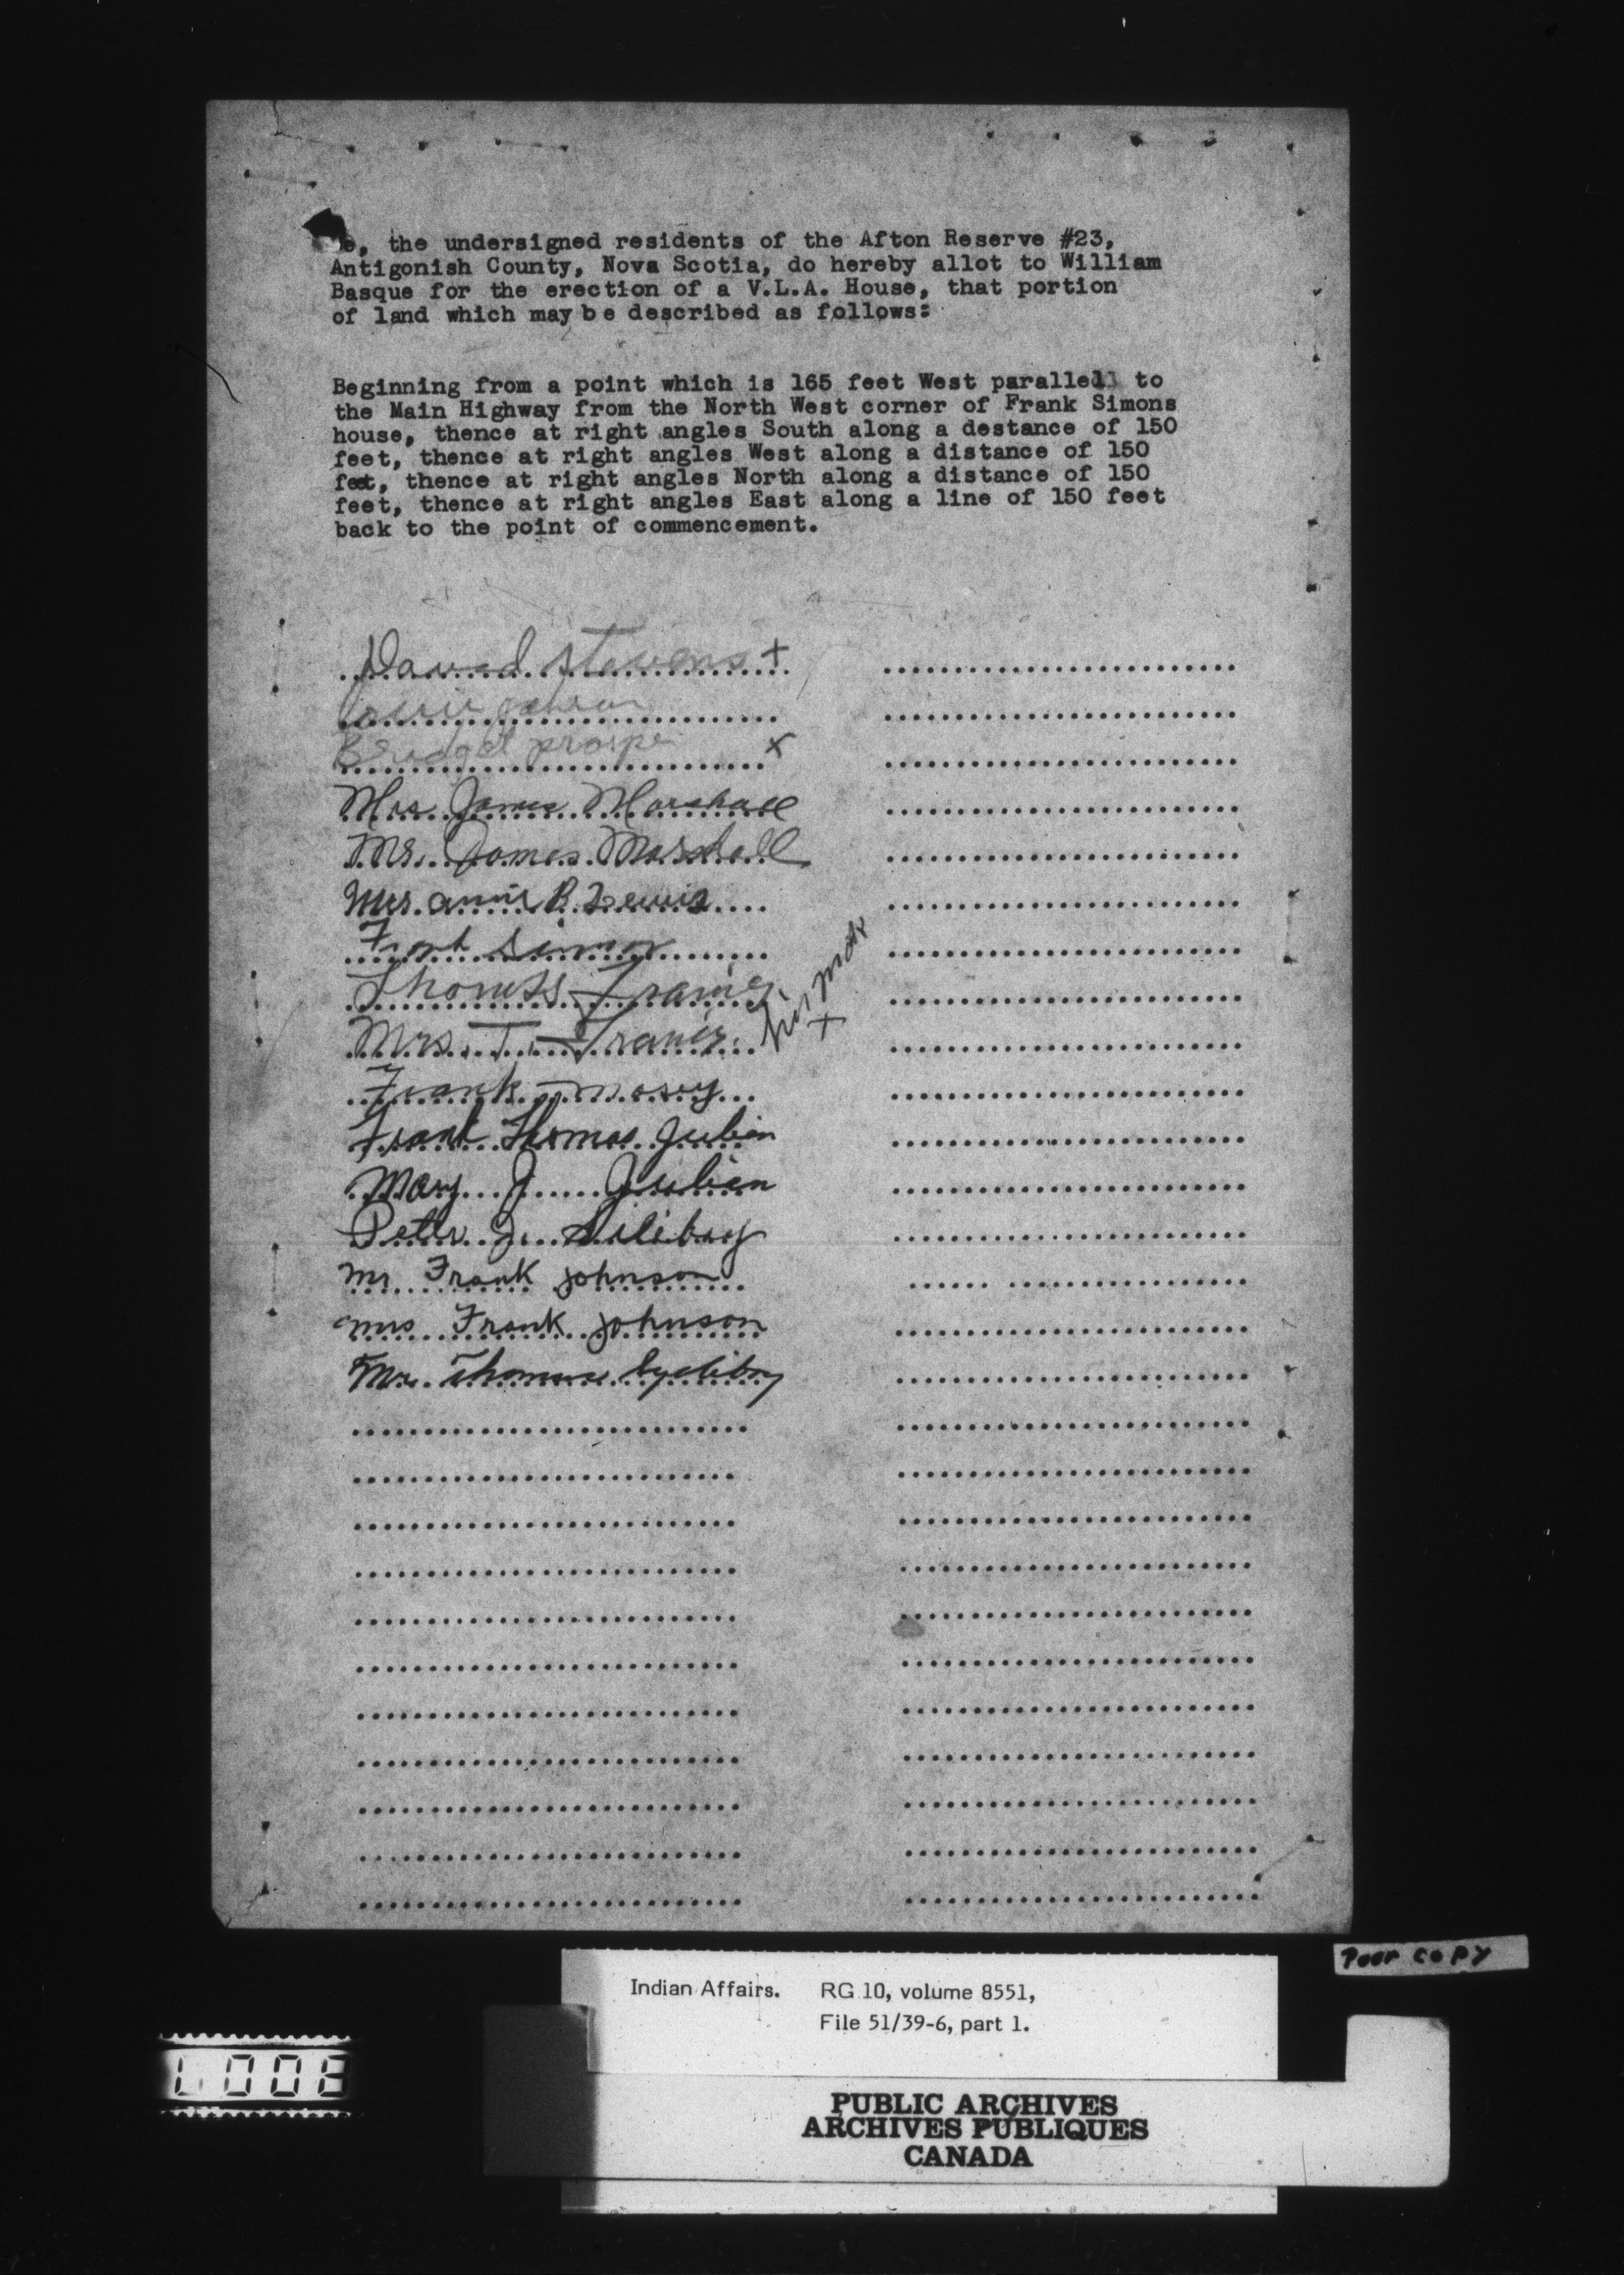 e, the undersigned residents of the Afton Reserve #23,
Antigonish County, Nova Scotia, do hereby allot to William
Basque for the erection of a V.L.A. House, that portion
of land which may be described as follows:
Beginning from a point which is 165 feet West parallell to
the Main Highway from the North West corner of Frank Simons
house, thence at right angles South along a destance of 150
feet, thence at right angles West along a distance of 150
feet, thence at right angles North along a distance of 150
feet, thence at right angles East along a line of 150 feet
back to the point of commencement.
David Stevens +
Bridget x
Mrs. James Marshall
Mr. James Marshall
Mrs. Annie B. Lewis
Frank Simon
Thomas Francis
his mark
Mrs. T. Francis +
Frank
Frank Thomas Julien
Mary J Julien
Peter J.
Mr Frank Johnson
Mrs Frank Johnson
Mr. Thomas
Poor copy
Indian Affairs. RG 10, volume 8551,
File 51/39-6, part 1.
PUBLIC ARCHIVES
ARCHIVES PUBLIQUES
CANADA